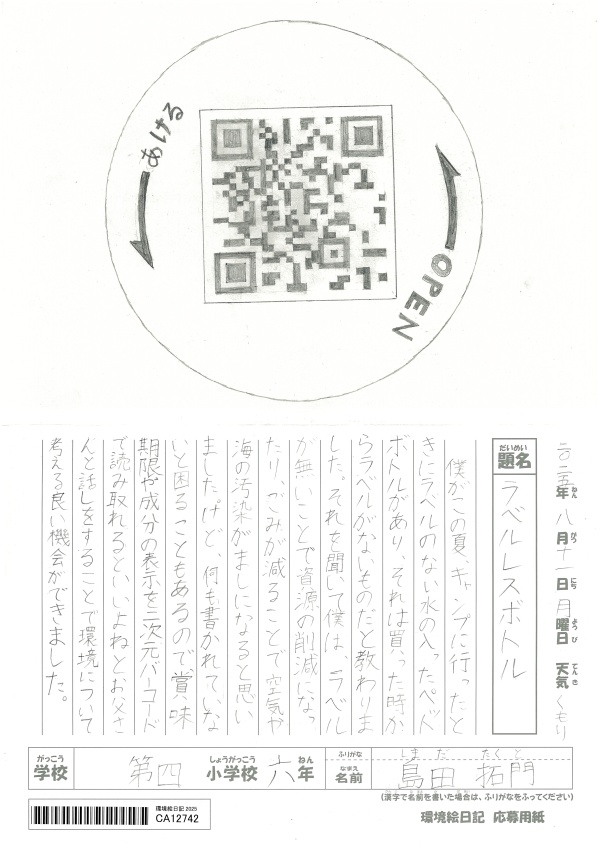 あける
OPEN
二〇二五年ねん八月がつ十一日にち月曜日ようび 天気てんきくもり
題名だいめい ラベルレスボトル
僕がこの夏、キャンプに行ったと
きにラベルのない水の入ったペット
ボトルがあり、それは買った時か
らラベルがないものだと教わりま
した。それを聞いて僕は、ラベル
が無いことで資源の削減になっ
たり、ごみが減ることで空気や
海の汚染がましになると思い
ました。けど、何も書かれていな
いと困ることもあるので、賞味
期限や成分の表示を二次元バーコード
で読み取れるといいよねとお父さ
んと話しをすることで環境について
考える良い機会ができました。
学校がっこう 第四 小学校しょうがっこう 六年ねん ふりがな しまだ たくと
名前なまえ 島田 拓門
(漢字で名前を書いた場合は、ふりがなをふってください)
環境絵日記2025
CA12742
環境絵日記 応募用紙